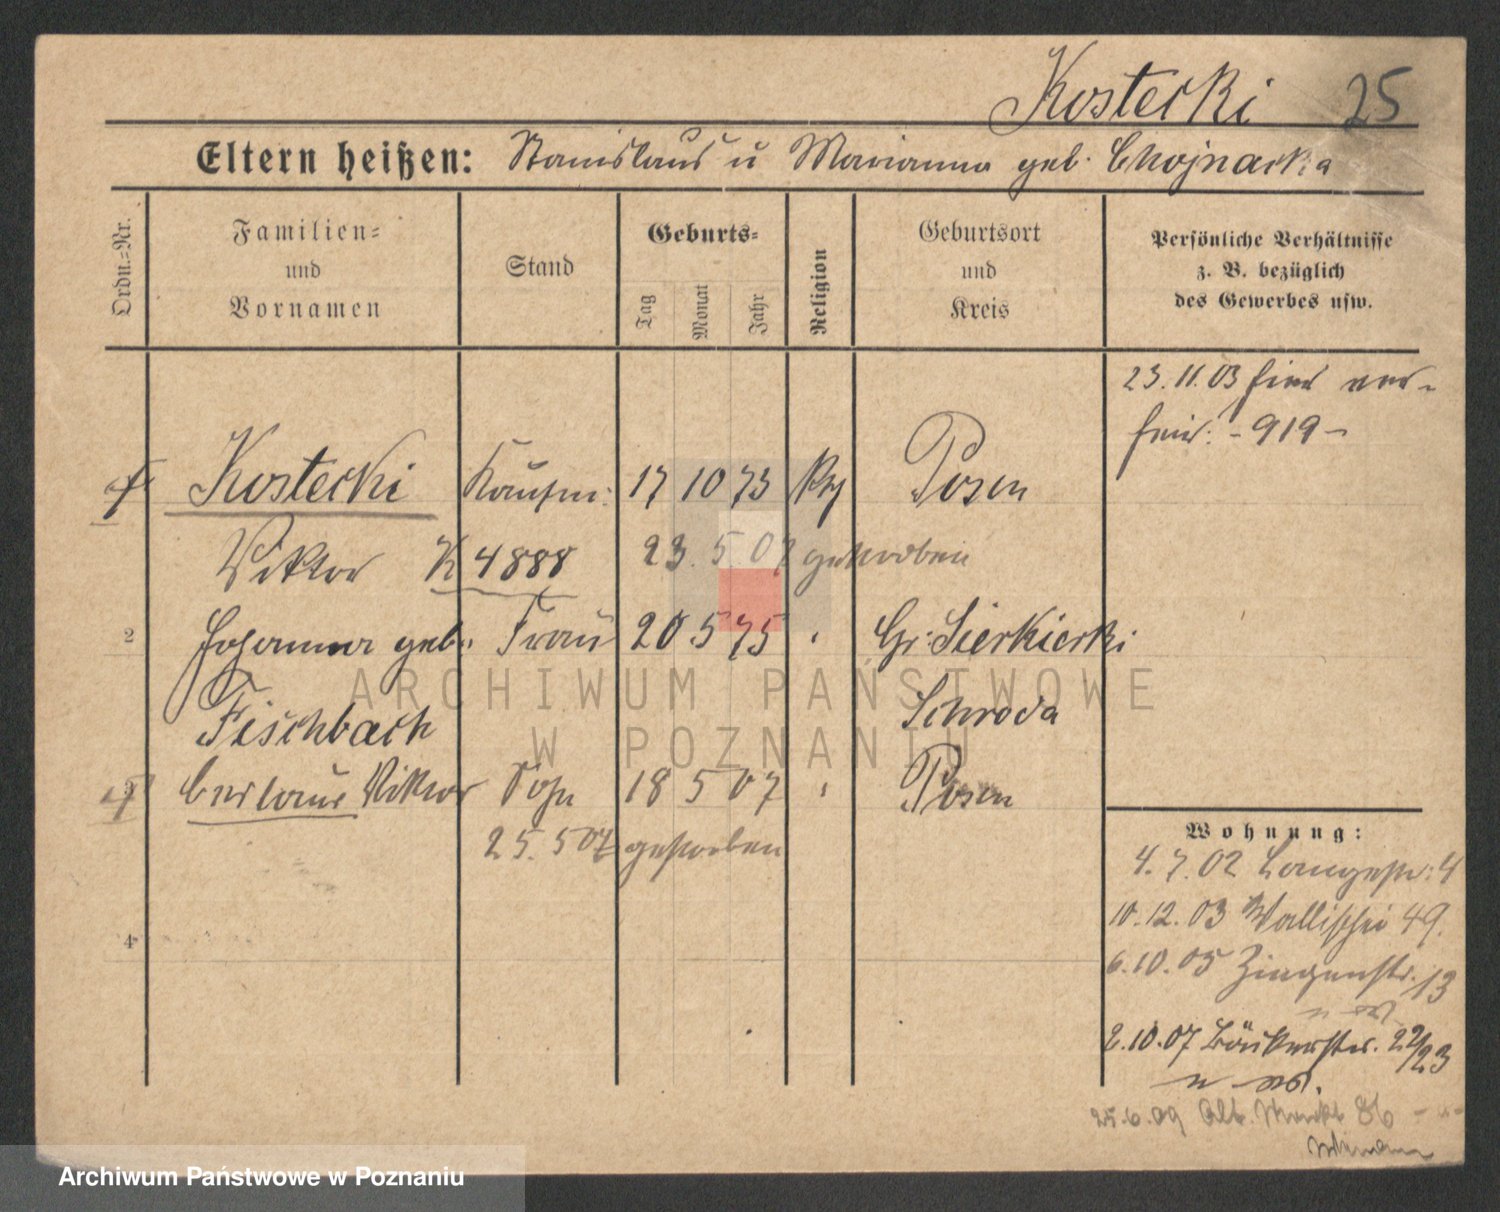 Kostecki 25
Eltern heißen: Stanislaus u Marianna geb. Chojnacka
Ordn.-Nr.
Familien-
und
Vornamen
Stand
Geburts-
Tag
Monat
Jahr
Religion
Geburtsort
und
Kreis
Persönliche Verhältnisse
z. B. bezüglich
des Gewerbes usw.
23.11.03 hier ver-
heir. - 919 -
Kostecki Kaufm. 17 10 73 Posen
Viktor K 4888 23. 5. 07 gestorben
2 Johanna geb. Frau 20 5 75 Gr. Sierkierki
Fischbach Schroda
Viktor Sohn 18 5 07 Posen
25. 5 07 gestorben
4
Wohnung:
4. 7. 02 Langestr. 4
10. 12. 03 Wallischei 49.
6. 10. 05 Ziegenstr. 13
2. 10. 07 Bäckerstr. 22/23
25.6.09 Alt. Markt 86
ARCHIWUM PAŃSTWOWE
W POZNANIU
Archiwum Państwowe w Poznaniu